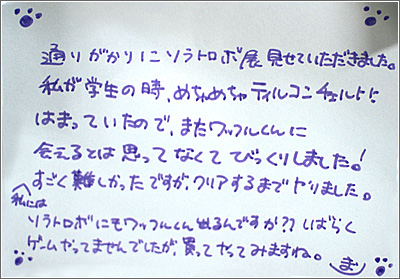 通りがかりにソラトロボ展見せていただきました。
私が学生の時、めちゃめちゃテイルコンチェルトに
はまっていたので、またワッフルくんに
会えるとは思ってなくてびっくりしました！
私には
すごく難しかったですが、クリアするまでヤりました。
ソラトロボにもワッフルくん出るんですか？？しばらく
ゲームやってませんでしたが、買ってやってみますね。